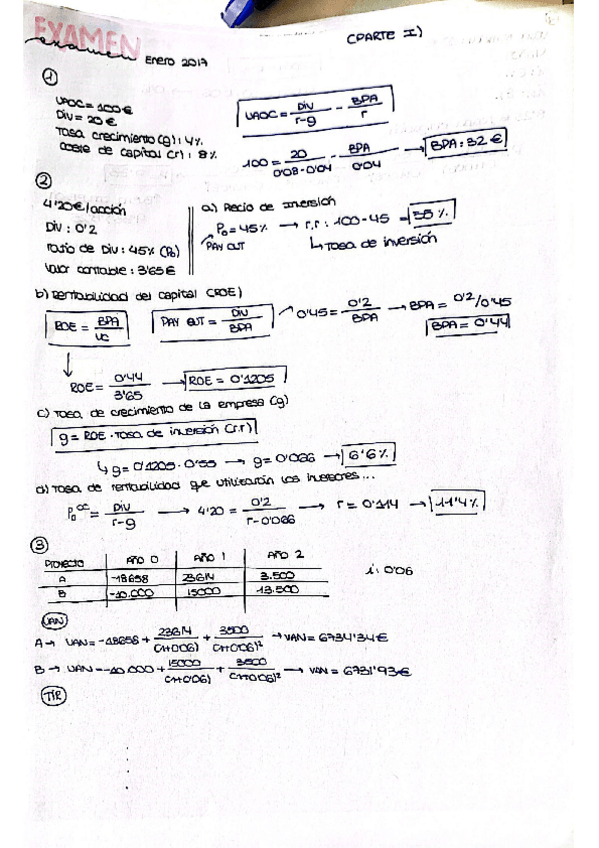 EXAMEN
examen Enero 2017 (PARTE I)
①
VAOC = 100€
DIV = 20€
Tasa crecimiento (g): 4%
Coste de capital (r): 8%
VAOC = DIV/r-g - BPA/r
100 = 20/0'08-0'04 - BPA/0'04 → BPA: 32€
②
4'20€/acción
DIV: 0'2
ratio de DIV: 45% (P₀)
Valor contable: 3'65€
a) Recio de inversión
P₀ = 45% → r.r: 100-45 = 55%
PAY OUT ↳ Tasa de inversión
b) Rentabilidad del capital (ROE)
ROE = BPA/VC
PAY OUT = DIV/BPA
0'45 = 0'2/BPA → BPA = 0'2/0'45
BPA = 0'44
ROE = 0'44/3'65 → ROE = 0'1205
c) Tasa de crecimiento de la empresa (g)
g = ROE · Tasa de inversión (r.r)
↳ g = 0'1205 · 0'55 → g = 0'066 → 6'6%
d) Tasa de rentabilidad que utilizarán los inversores...
P₀ = DIV/r-g → 4'20 = 0'2/r-0'066 → r = 0'114 → 11'4%
③
Proyecto AÑO 0 AÑO 1 AÑO 2
A -18658 23614 3.500
B -10.000 15000 13.500
i: 0'06
VAN
A → VAN = -18658 + 23614/(1+0'06) + 3500/(1+0'06)² → VAN = 6734'34€
B → VAN = -10.000 + 15000/(1+0'06) + 3500/(1+0'06)² → VAN = 6731'93€
TIR